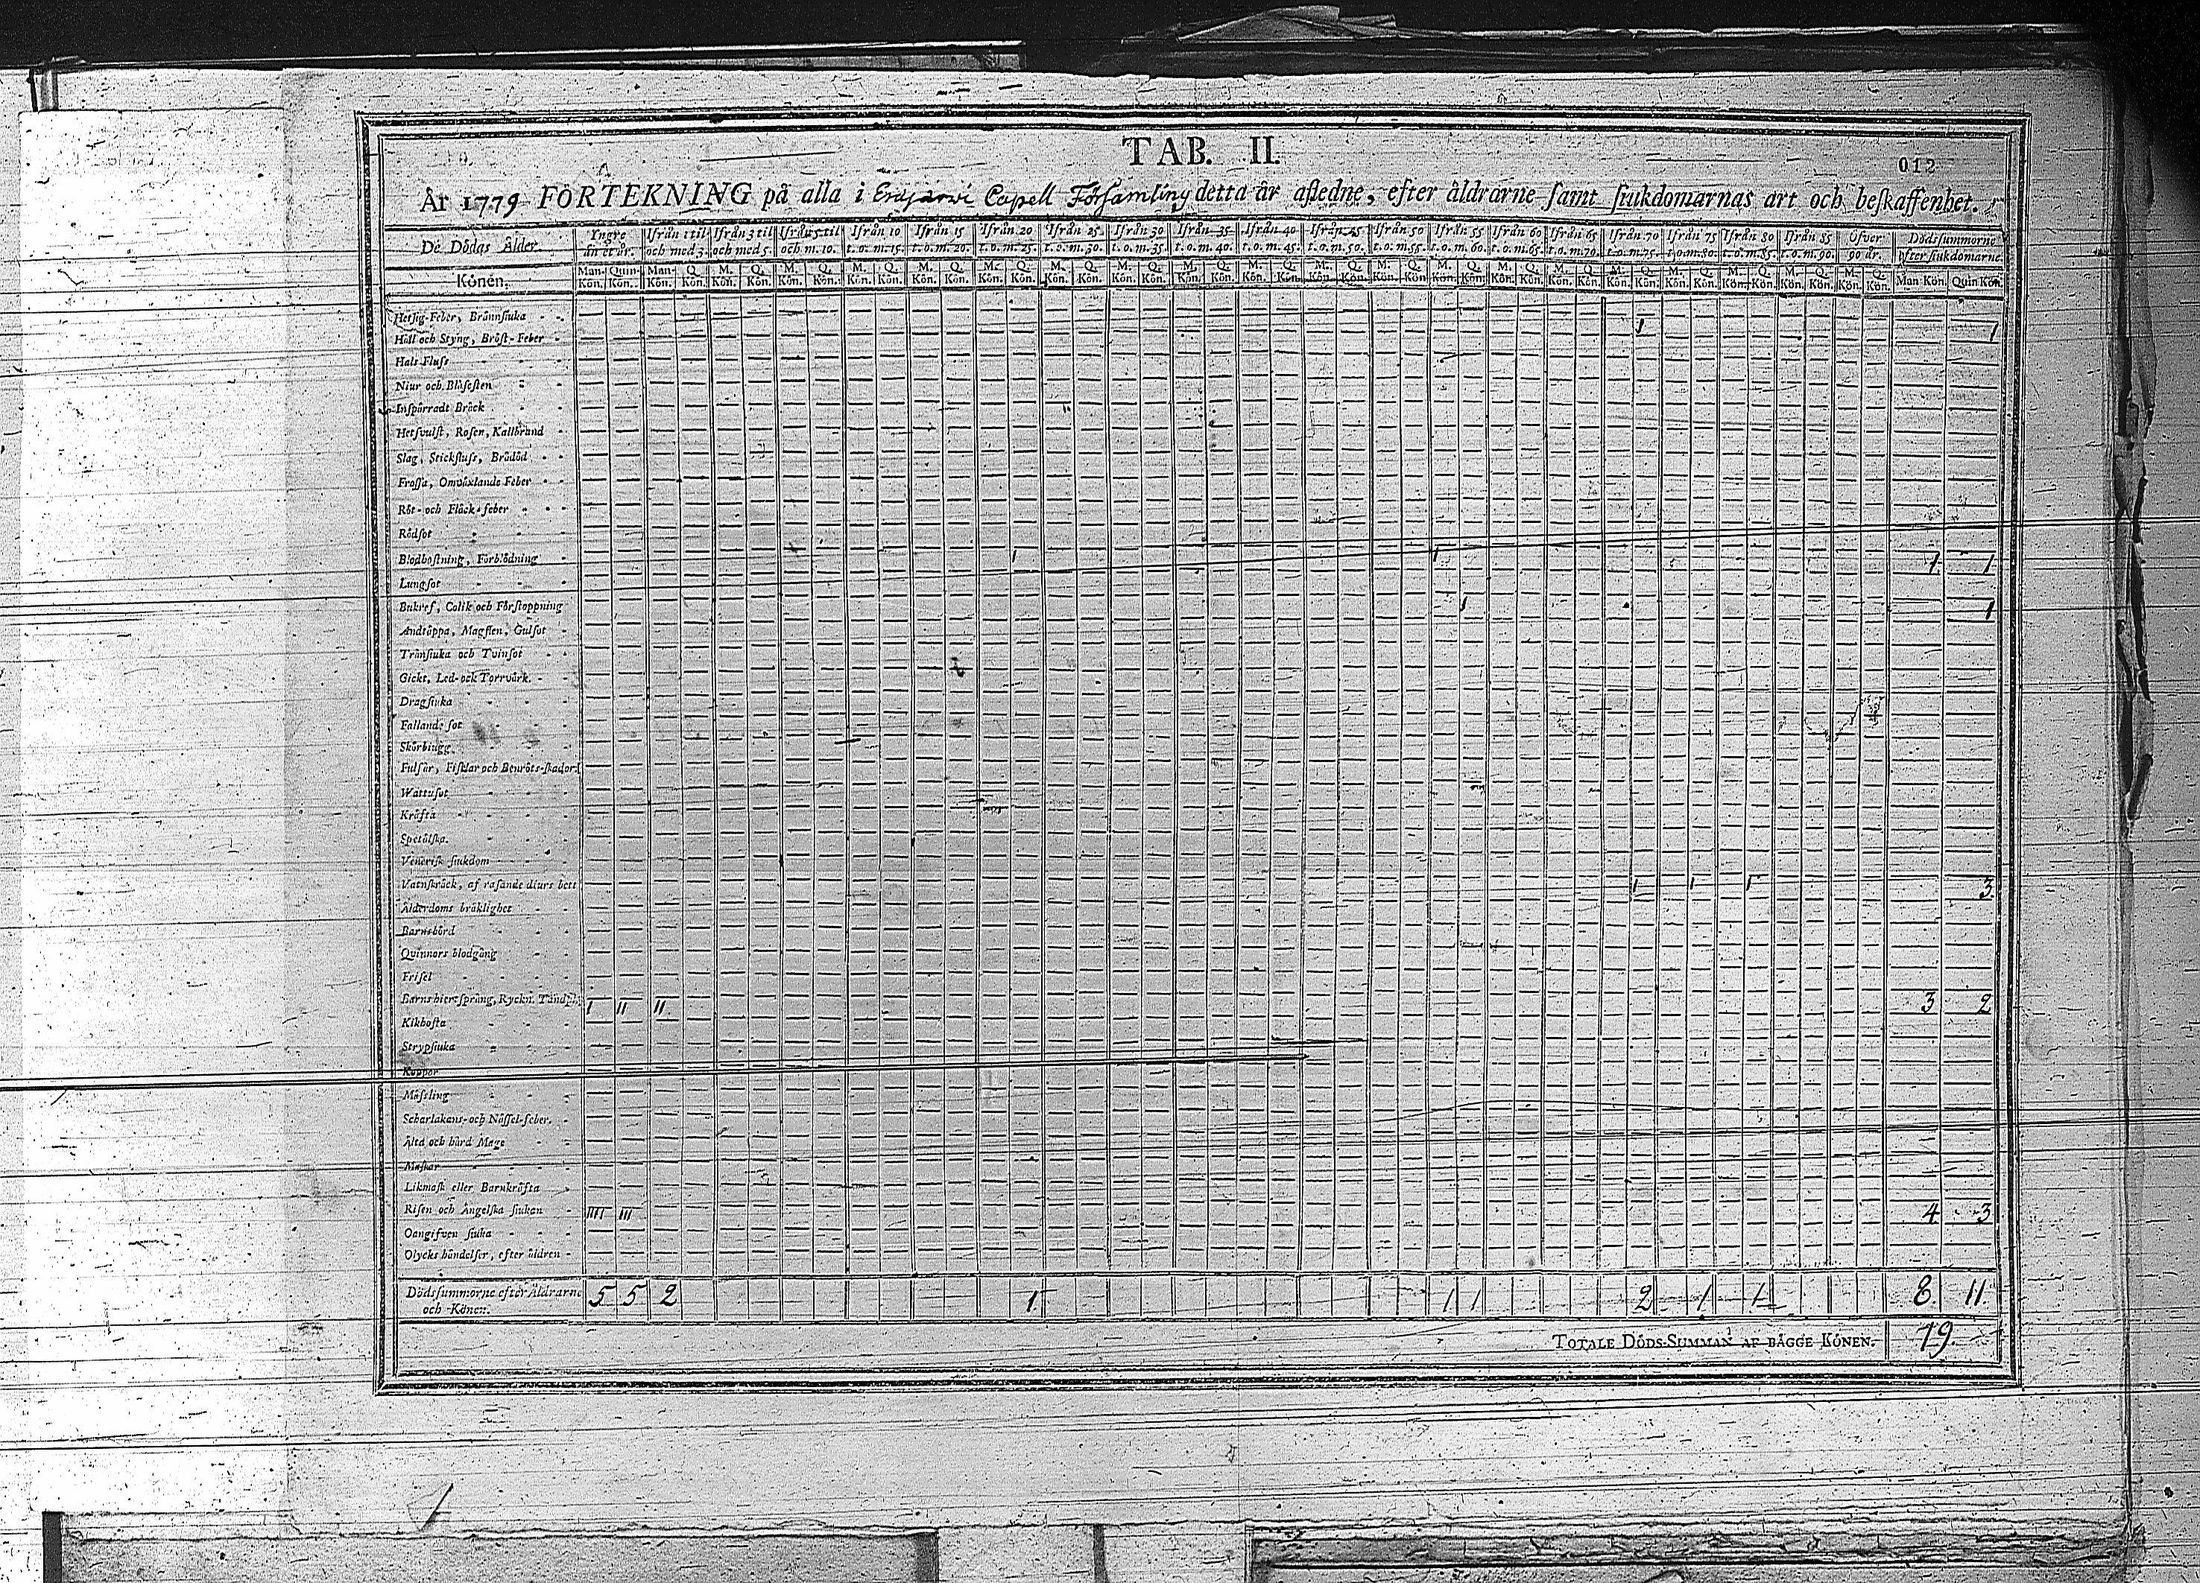 TAB. II.
012
År 1779 FÖRTEKNING på alla i Capell Församling detta år afledne, efter åldrarne samt siukdomarnas art och beskaffenhet.
De Dödas Ålder. Yngre än et år. Ifrån 1 til och med 3. Ifrån 3 til och med 5. Ifrån 5 til och m. 10. Ifrån 10 t.o.m. 15. Ifrån 15 t.o.m. 20. Ifrån 20 t.o.m. 25. Ifrån 25 t.o.m. 30. Ifrån 30 t.o.m. 35. Ifrån 35 t.o.m. 40. Ifrån 40 t.o.m. 45. Ifrån 45 t.o.m. 50. Ifrån 50 t.o.m. 55. Ifrån 55 t.o.m. 60. Ifrån 60 t.o.m. 65. Ifrån 65 t.o.m. 70. Ifrån 70 t.o.m. 75. Ifrån 75 t.o.m. 80. Ifrån 80 t.o.m. 85. Ifrån 85 t.o.m. 90. Öfver 90 år. Dödssummorne efter siukdomarne.
Könen. Man-Kön. Quin-Kön. Man-Kön. Q. Kön. M. Kön. Q. Kön. M. Kön. Q. Kön. M. Kön. Q. Kön. M. Kön. Q. Kön. M. Kön. Q. Kön. M. Kön. Q. Kön. M. Kön. Q. Kön. M. Kön. Q. Kön. M. Kön. Q. Kön. M. Kön. Q. Kön. M. Kön. Q. Kön. M. Kön. Q. Kön. M. Kön. Q. Kön. M. Kön. Q. Kön. M. Kön. Q. Kön. M. Kön. Q. Kön. M. Kön. Q. Kön. M. Kön. Q. Kön. M. Kön. Q. Kön. Man Kön. Quin Kön.
Hetsig-Feber, Brännsiuka
Håll och Styng, Bröst-Feber 1 1
Hals-Fluss
Niur och Blåsesten
Inspärradt Bråck
Hetsvulst, Rosen, Kallbrand
Slag, Stickfluss, Brådöd
Frossa, Omväxlande Feber
Röt- och Fläck-feber
Rödsot
Blodhostning, Förblödning 1 1 1 1
Lungsot
Bukref, Colik och Förstoppning 1 1
Andtäppa, Magsten, Gulsot
Trånsiuka och Tvinsot
Gickt, Led- ock Torrvärk
Dragsiuka
Fallande sot
Skörbiugg
Fulsår, Fistlar och Benröts-skador
Wattusot
Kräfta
Spetälska
Venerisk siukdom
Vatnskräck, af rasande diurs bett 1 1 1 3
Ålderdoms bräklighet
Barnsbörd
Quinnors blodgång
Frisel
Barns hiertsprång, Ryckn. I II II 3 2
Kikhosta
Strypsiuka
Koppor
Mässling
Scharlakans- och Nässel-feber
Älta och hård Mage
Maskar
Likmask eller Barnkräfta
Risen och Ängelska siukan IIII III 4 3
Oangifven siuka
Olycks händelser, efter äldren
Dödssummorne efter Åldrarne och Könen. 5 5 2 1 1 1 2 1 1 8 11
TOTALE DÖDS-SUMMAN AF BÄGGE KÖNEN. 19.